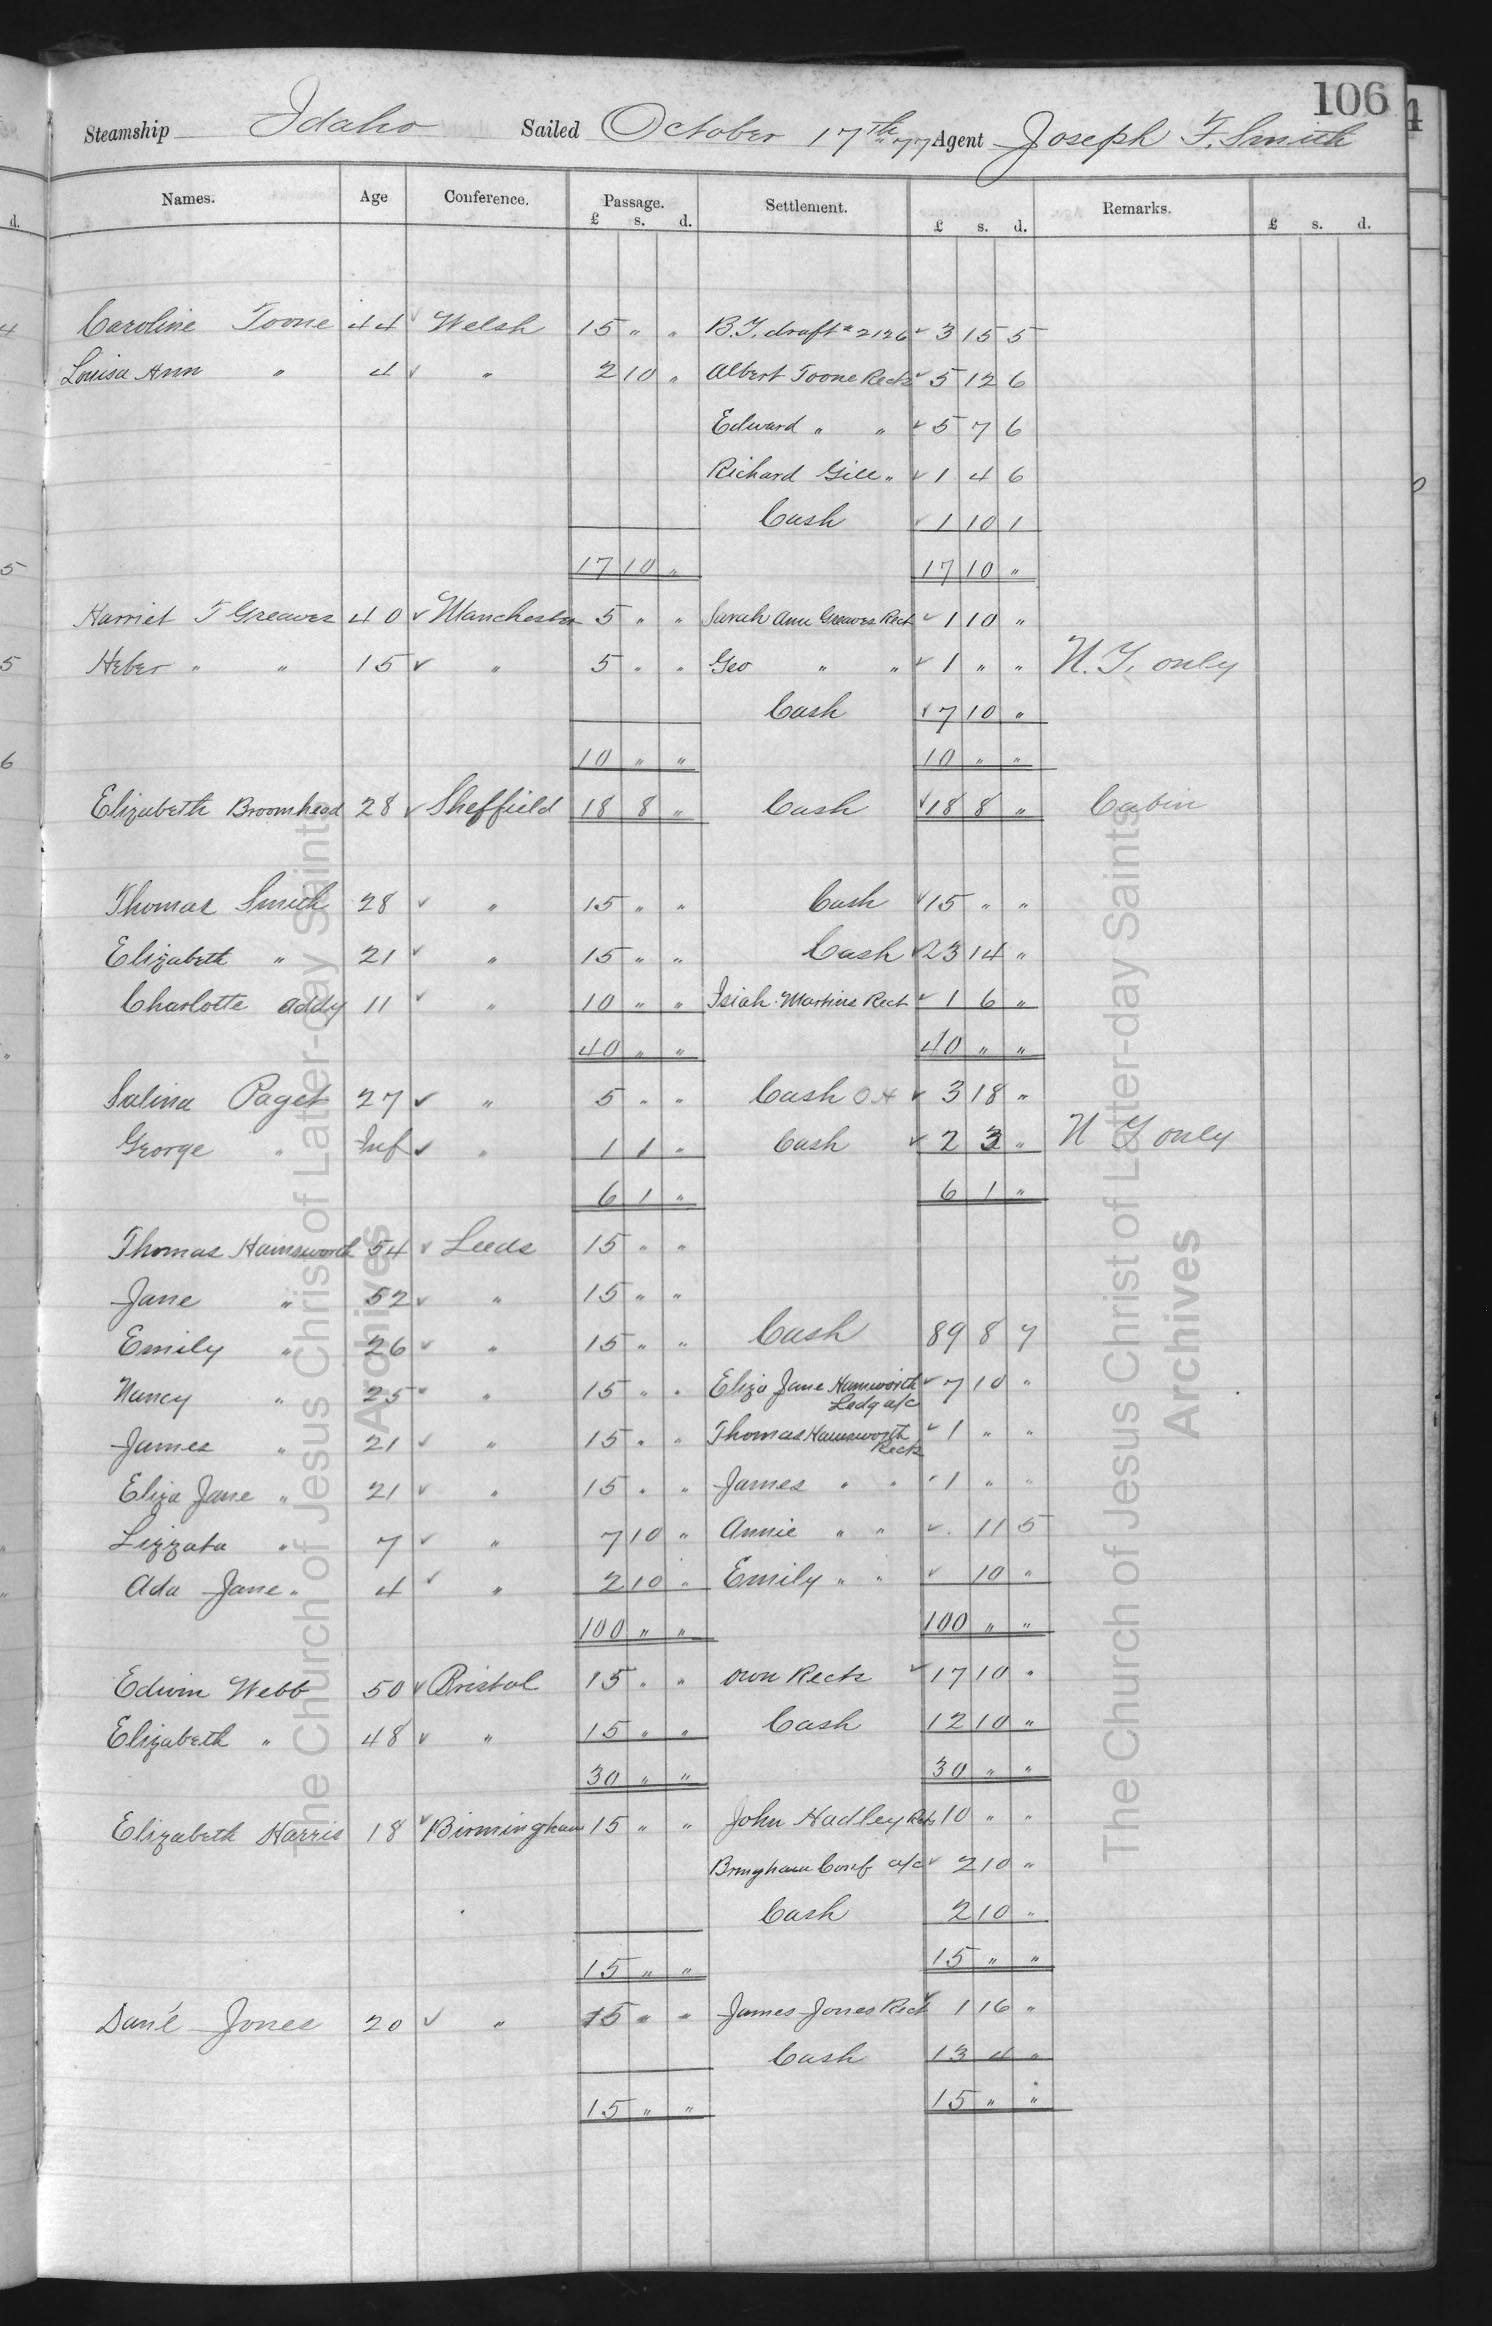 106
Steamship Idaho Sailed October 17th "77 Agent Joseph F. Smith
Names. Age Conference. Passage. Settlement. Remarks.
£ s. d. £ s. d. £ s. d.
Caroline Toone 44 ✓ Welsh 15 " " B.Y. draft # 2126 ✓ 3 15 5
Louisa Ann " 4 ✓ " 2 10 " Albert Toone Rects ✓ 5 12 6
Edward " " ✓ 5 7 6
Richard Gill " ✓ 1 4 6
Cash ✓ 1 10 1
17 10 " 17 10 "
Harriet T Greaves 40 ✓ Manchester 5 " " Sarah Ann Greaves Rect ✓ 1 10 "
Heber " " 15 ✓ " 5 " " Geo " " ✓ 1 " " N.Y. only
Cash ✓ 7 10 "
10 " " 10 " "
Elizabeth Broomhead 28 ✓ Sheffield 18 8 " Cash ✓ 18 8 " Cabin
Thomas Smith 28 ✓ " 15 " " Cash ✓ 15 " "
Elizabeth " 21 ✓ " 15 " " Cash ✓ 23 14 "
Charlotte Addy 11 ✓ " 10 " " Isiah Martins Rect ✓ 1 6 "
40 " " 40 " "
Salina Paget 27 ✓ " 5 " " Cash ✓ 3 18 "
George " Inf ✓ " 1 1 " Cash ✓ 2 3 " N Y only
6 1 " 6 1 "
Thomas Hainsworth 54 ✓ Leeds 15 " "
Jane " 52 ✓ " 15 " "
Emily " 26 ✓ " 15 " " Cash 89 8 7
Nancy " 25 " " 15 " " Eliza Jane Hainsworth ✓ 7 10 "
Ledg a/c
James " 21 ✓ " 15 " " Thomas Hainsworth ✓ 1 " "
Rects
Eliza Jane " 21 ✓ " 15 " " James " " ✓ 1 " "
Lizzata " 7 ✓ " 7 10 " Annie " " ✓ . 11 5
Ada Jane " 4 ✓ " 2 10 " Emily " " ✓ 10 "
100 " " 100 " "
Edwin Webb 50 ✓ Bristol 15 " " Own Rects ✓ 17 10 "
Elizabeth " 48 ✓ " 15 " " Cash 12 10 "
30 " " 30 " "
Elizabeth Harris 18 ✓ Birmingham 15 " " John Hadley Rets 10 " "
Bringham Conf a/c ✓ 2 10 "
Cash 2 10 "
15 " " 15 " "
Danl Jones 20 ✓ " 15 " " James Jones Rect ✓ 1 16 "
Cash 13 4 "
15 " " 15 " "
The Church of Jesus Christ of Latter-day Saints
Archives
The Church of Jesus Christ of Latter-day Saints
Archives